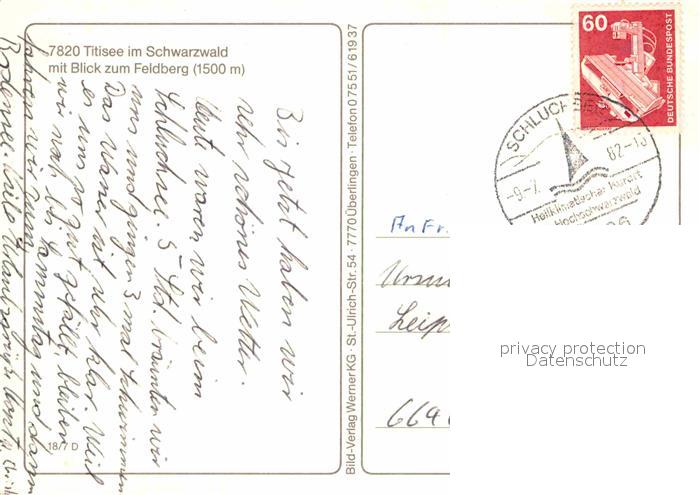 7820 Titisee im Schwarzwald
mit Blick zum Feldberg (1500 m)
Bis jetzt haben wir
sehr schönes Wetter.
Heut waren wir beim
Schluchsee. 5 Std. bräunten wir
uns und gingen 3 mal schwimmen
Das Wasser ist sehr klar. Weil
es uns so gut gefällt, bleiben
wir noch bis Samstag und dann
fahren wir zum
Bodensee. Viele Urlaubsgrüße
18/7 D
Bild-Verlag Werner KG · St.-Ulrich-Str. 54 · 7770 Überlingen · Telefon 07551/61937
60
DEUTSCHE BUNDESPOST
SCHLUCHSEE
-9.-7. 82-18
Heilklimatischer Kurort
Hochschwarzwald
An Fr.
Ursu
Leip
664
privacy protection
Datenschutz